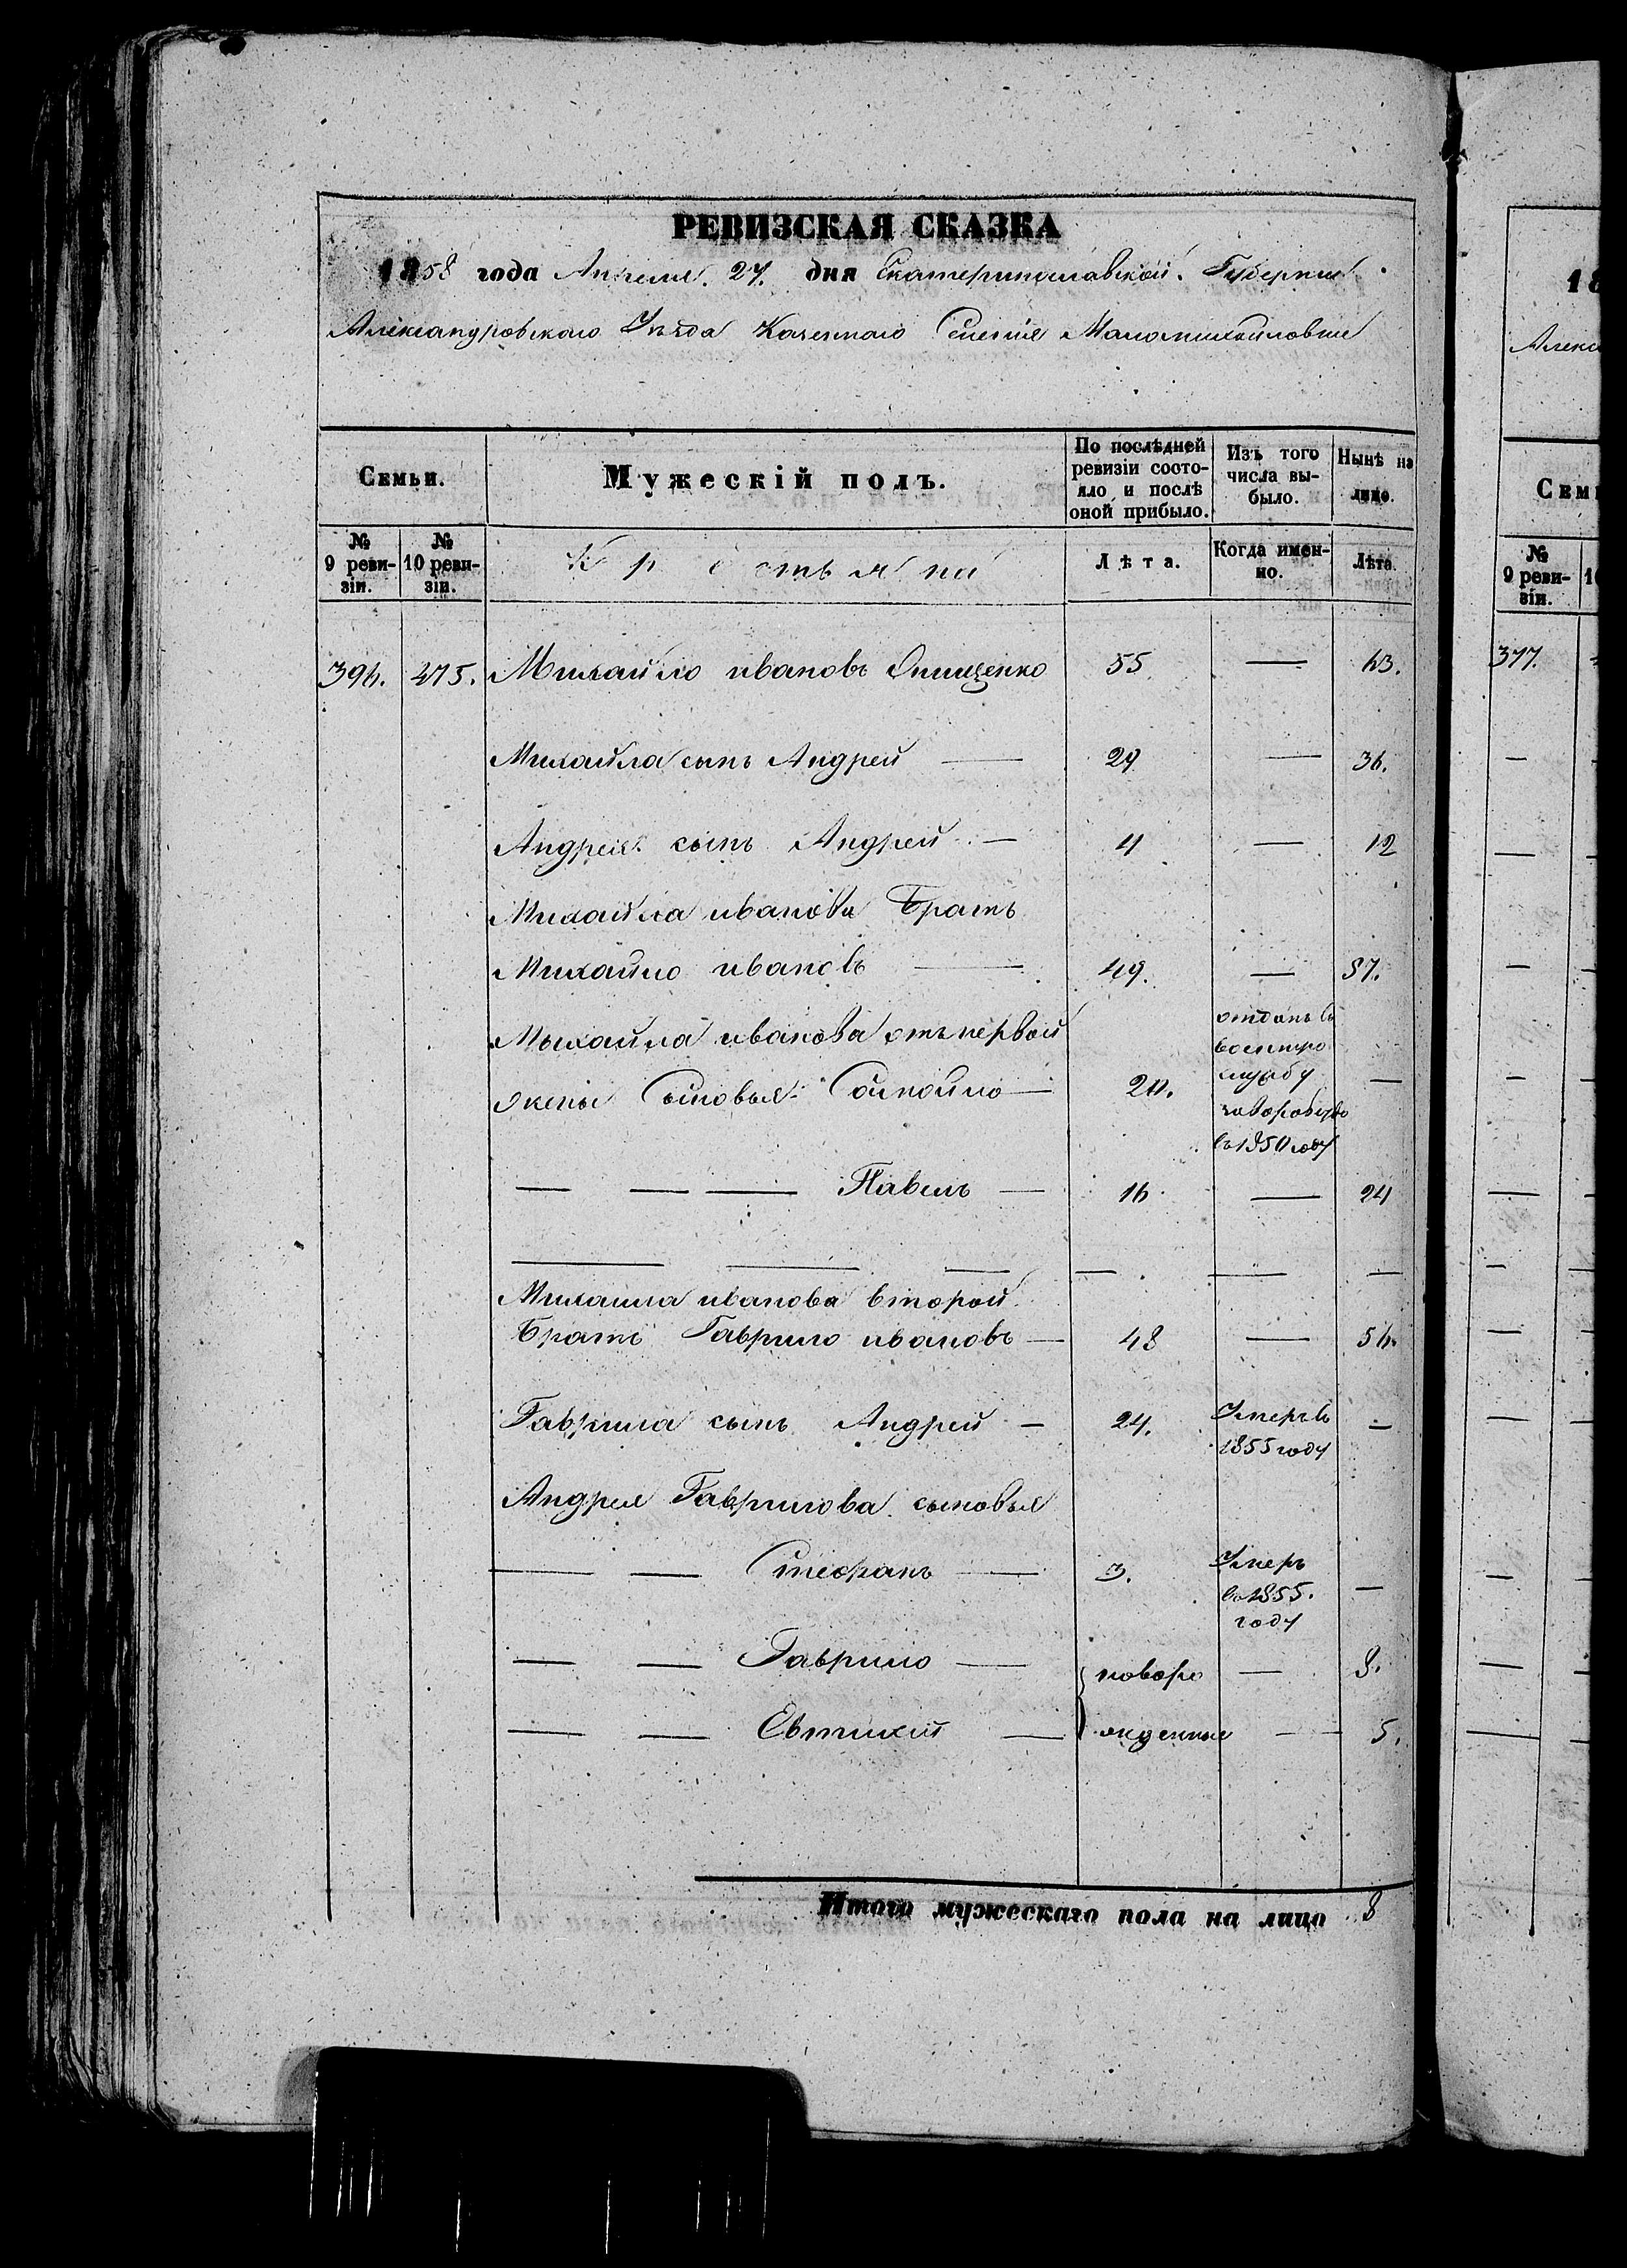 РЕВИЗСКАЯ СКАЗКА
1858 года Апреля 27. дня Екатеринославской Губернии
Александровского Уезда Казенного Селения Маломихайловки
Семьи.
Мужескій полъ.
По послѣдней ревизіи состояло и послѣ оной прибыло.
Изъ того числа выбыло.
Нынѣ на лицо.
№ 9 ревизіи.
№ 10 ревизіи.
Крестьяне
Лѣта.
Когда именно.
Лѣта.
396. 475. Михайло ивановъ Онищенко 55 — 63.
Михайла сынъ Андрей — 29 — 36.
Андрея сынъ Андрей — 4 — 12
Михайла иванова Братъ
Михайло ивановъ — 49. — 57.
Михайла иванова отъ первой
жены Сыновья: 20. —
отданъ въ
службу
въ 1850 году
— — — Павелъ — 16 — 24
— — — — — —
Михаила иванова второй
Братъ Гаврило ивановъ — 48 — 56.
Гаврила сынъ Андрей — 24. Умеръ въ —
1855 году
Андрея Гаврилова сыновья
— — Стефанъ — 3. Умеръ
въ 1855. —
году
— — Гаврило — новоро — 8.
— — Евтихий — жденные — 5.
Итого мужескаго пола на лицо 8
18
Алекс
Семь
№ 9 ревизіи.
377.